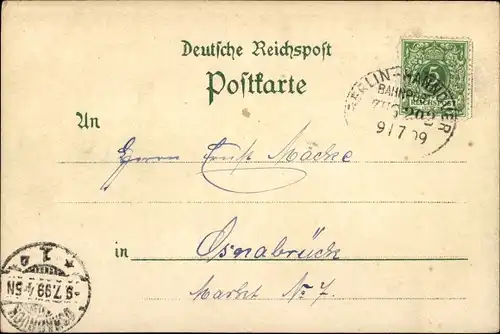 Deutsche Reichspost
Postkarte
BERLIN-HANNOVER
BAHNPOST
ZUG 202
9/7 99
REICHSPOST
An
Herrn Ernst Macke
in
Osnabrück
Markt No 7.
OSNABRÜCK
9.7.99.4-5N